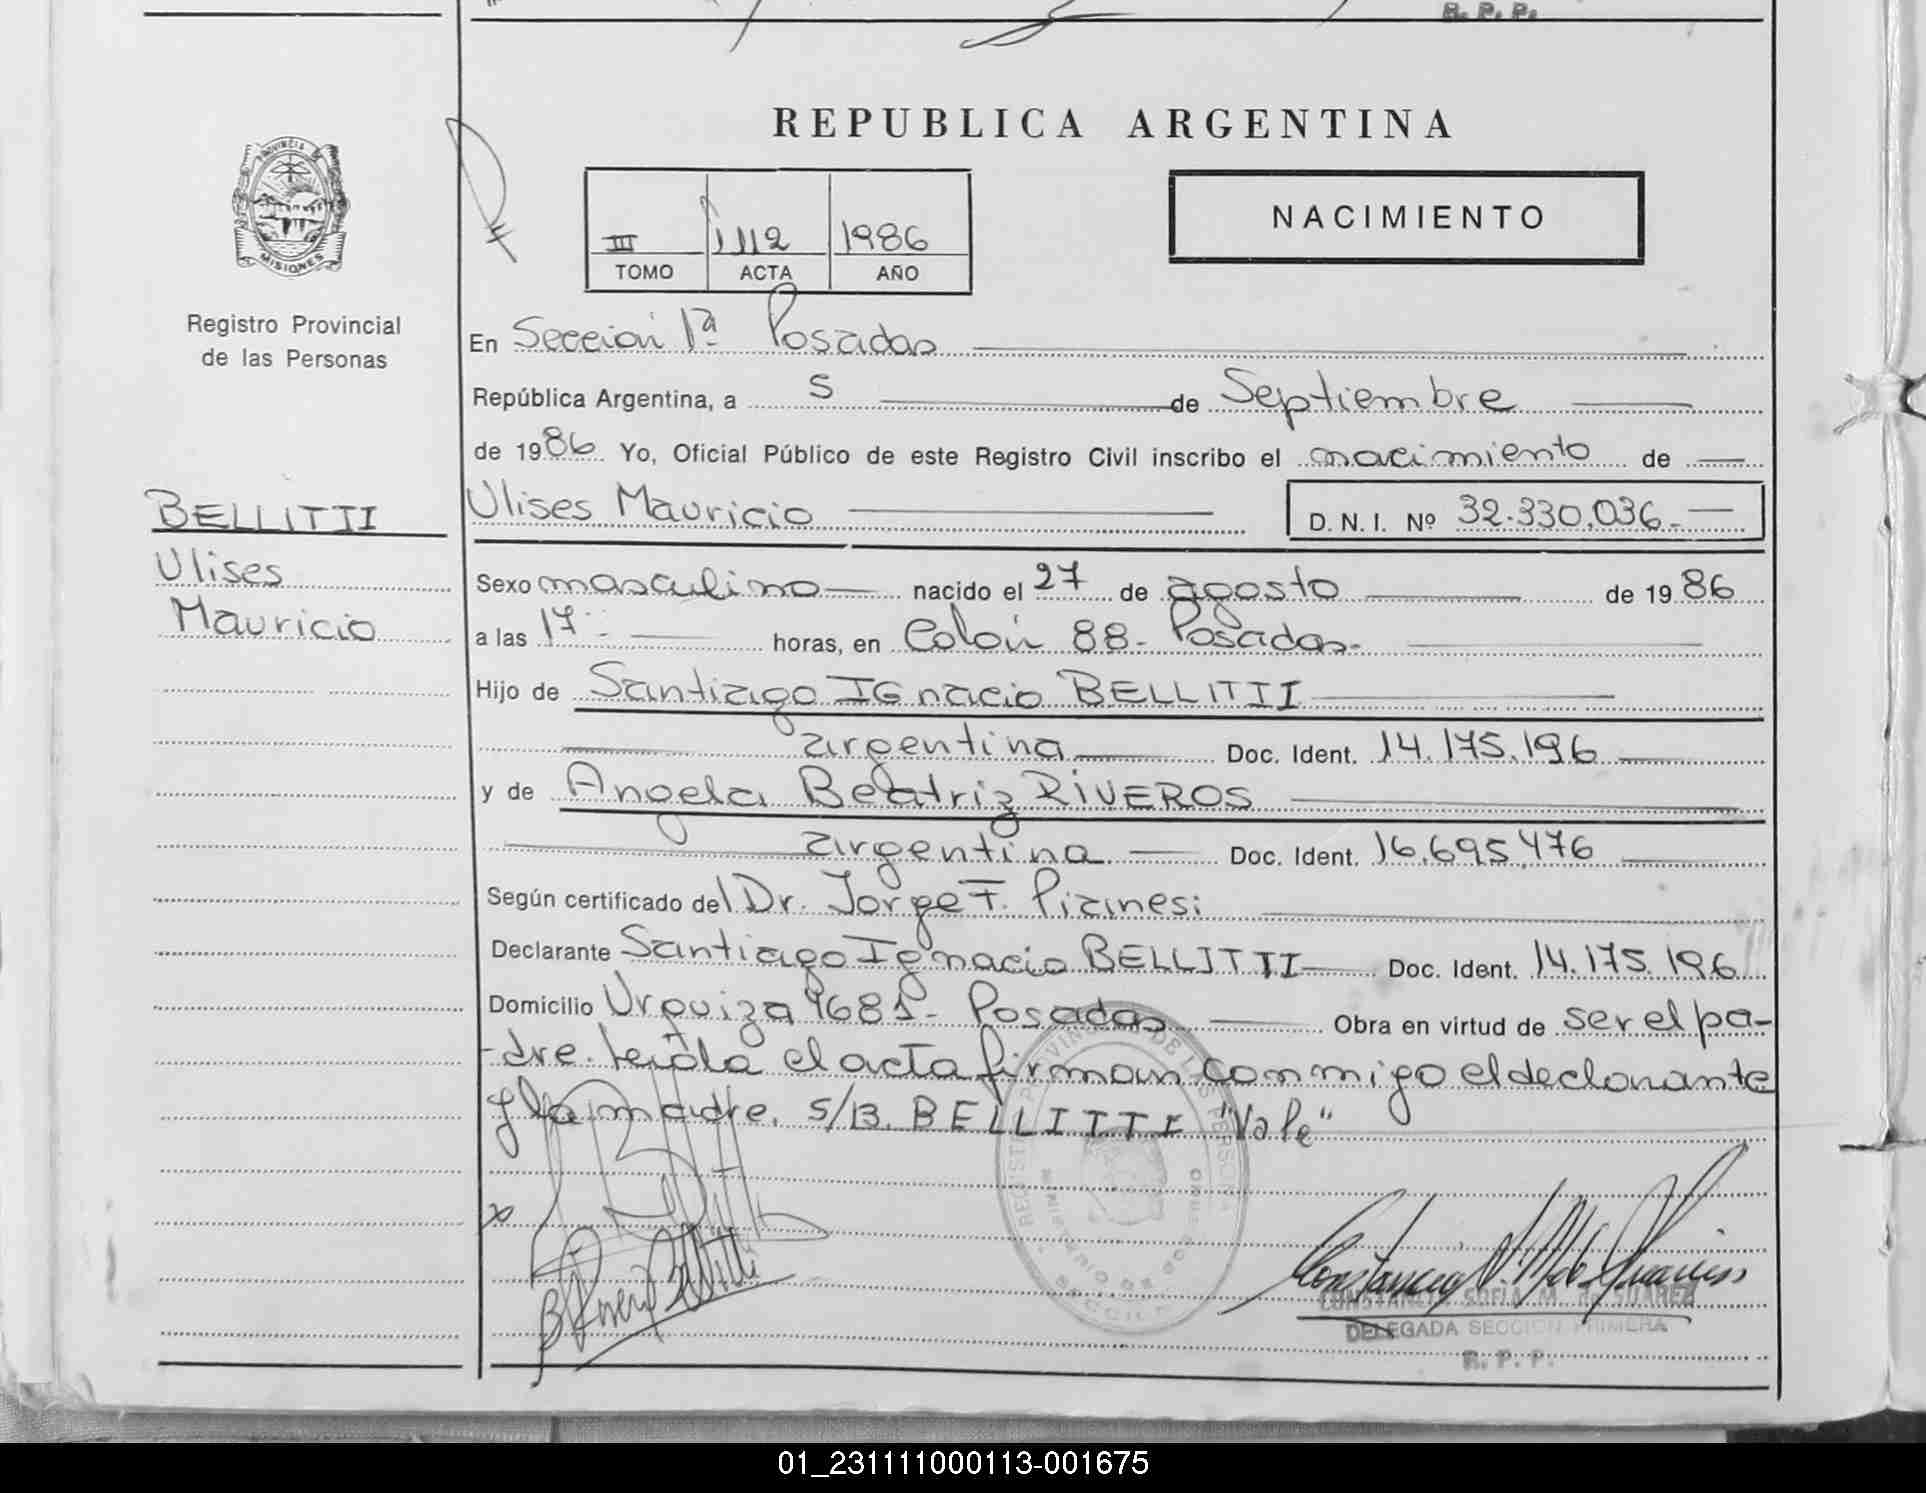 R. P. P.
REPUBLICA ARGENTINA
PROVINCIA DE
MISIONES
Registro Provincial
de las Personas
III 1112 1986
TOMO ACTA AÑO
NACIMIENTO
En Sección 1ª Posadas
República Argentina, a 5 de Septiembre
de 1986 Yo, Oficial Público de este Registro Civil inscribo el nacimiento de
BELLITTI
Ulises
Mauricio
Ulises Mauricio D. N. I. Nº 32.330.036.
Sexo masculino nacido el 27 de agosto de 1986
a las 17- horas, en Colón 88- Posadas-
Hijo de Santiago IGnacio BELLITTI
argentina Doc. Ident. 14.175.196
y de Angela Beatriz RIVEROS
argentina Doc. Ident. 16.695.476
Según certificado del Dr. Jorge F. Piranesi
Declarante Santiago Ignacio BELLITTI Doc. Ident. 14.175.196
Domicilio Urquiza 1681- Posadas Obra en virtud de ser el pa-
-dre. leída el acta firman conmigo el declarante
y la madre. S/B. BELLITTI "Vale"
CONSTANCIA SOFIA M. de SUAREZ
DELEGADA SECCION PRIMERA
R. P. P.
01_231111000113-001675